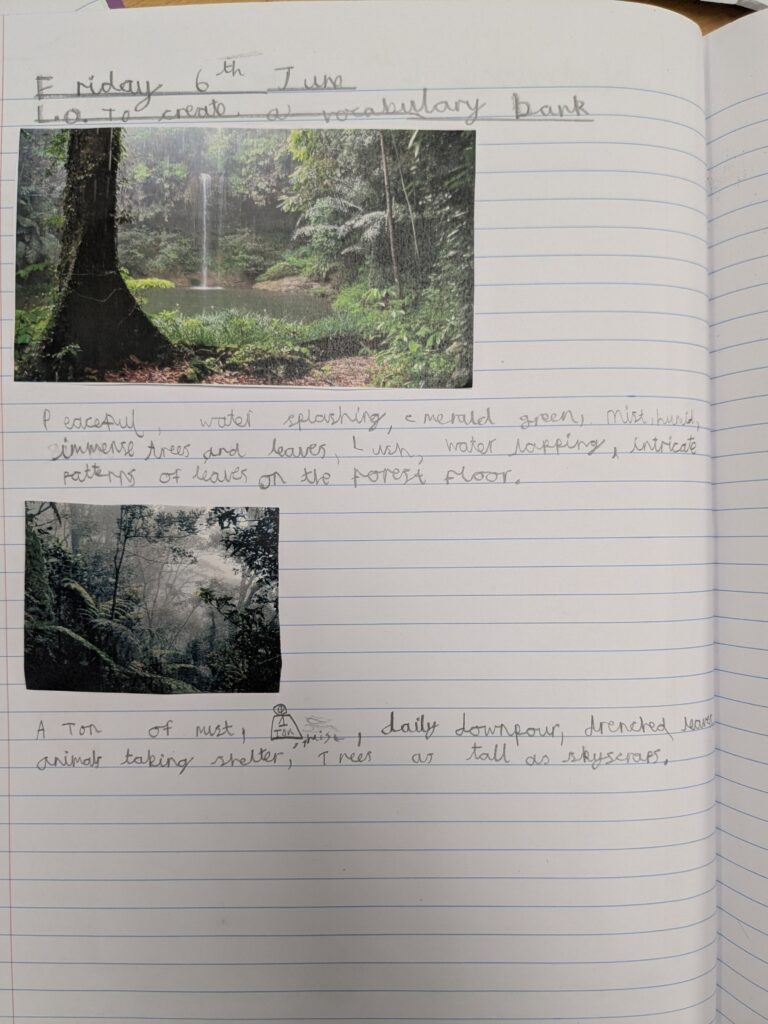 Friday 6th June
L.O. To create a vocabulary bank
Peaceful, water splashing, emerald green, mist, humid,
immense trees and leaves, Lush, water lapping, intricate
patterns of leaves on the forest floor.
A Ton of mist, 1 Ton, mist, daily downpour, drenched leaves
animals taking shelter, Trees as tall as skyscraps.